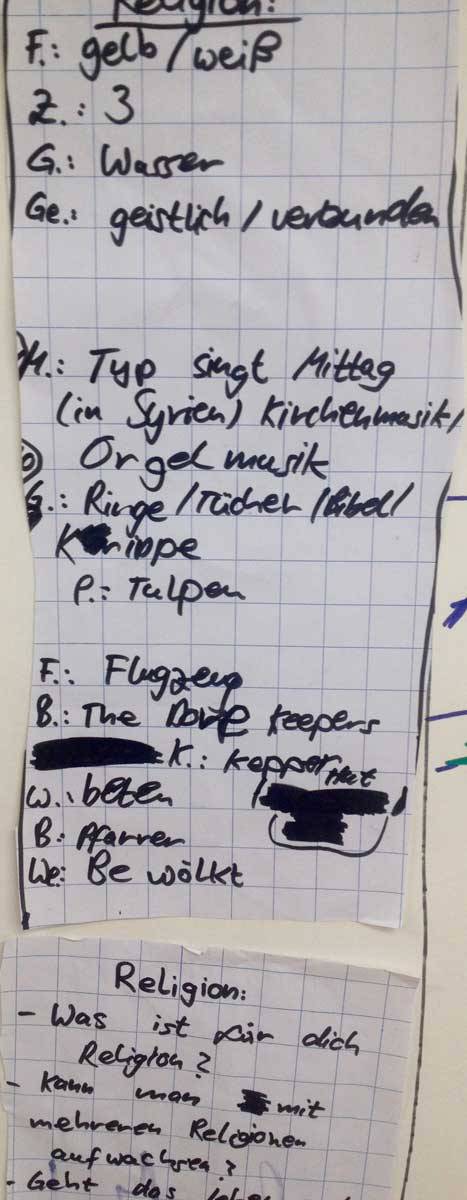 Religion:
F.: gelb / weiß
Z.: 3
G.: Wasser
Ge.: geistlich / verbunden
M.: Typ singt Mittag
(in Syrien) Kirchenmusik /
Orgelmusik
G.: Ringe / Tücher / Bibel /
Krippe
P.: Tulpen
F.: Flugzeug
B.: The keepers
K.: Kepper Hut
W.: beten
B: Pfarrer
We: Bewölkt
Religion:
- Was ist für dich
Religion?
- Kann man mit
mehreren Religionen
aufwachsen?
- Geht das